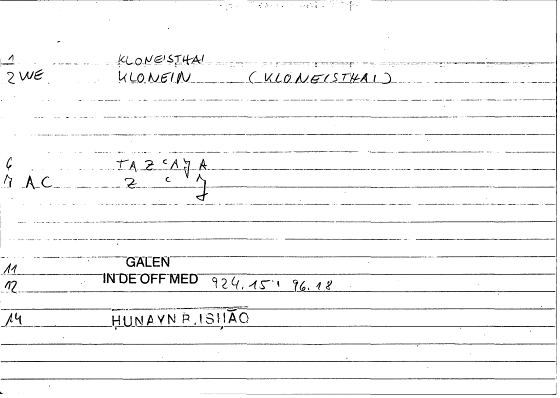 1 KLONEISTHAI
2 WE KLONEIN (KLONEISTHAI)
6 TAZʿAʾǦAʿA
7 AC Z ʿ Ǧ
11 GALEN
12 IN DE OFF MED 924.15 ; 96.18
14 ḤUNAYN B. ISḤĀQ